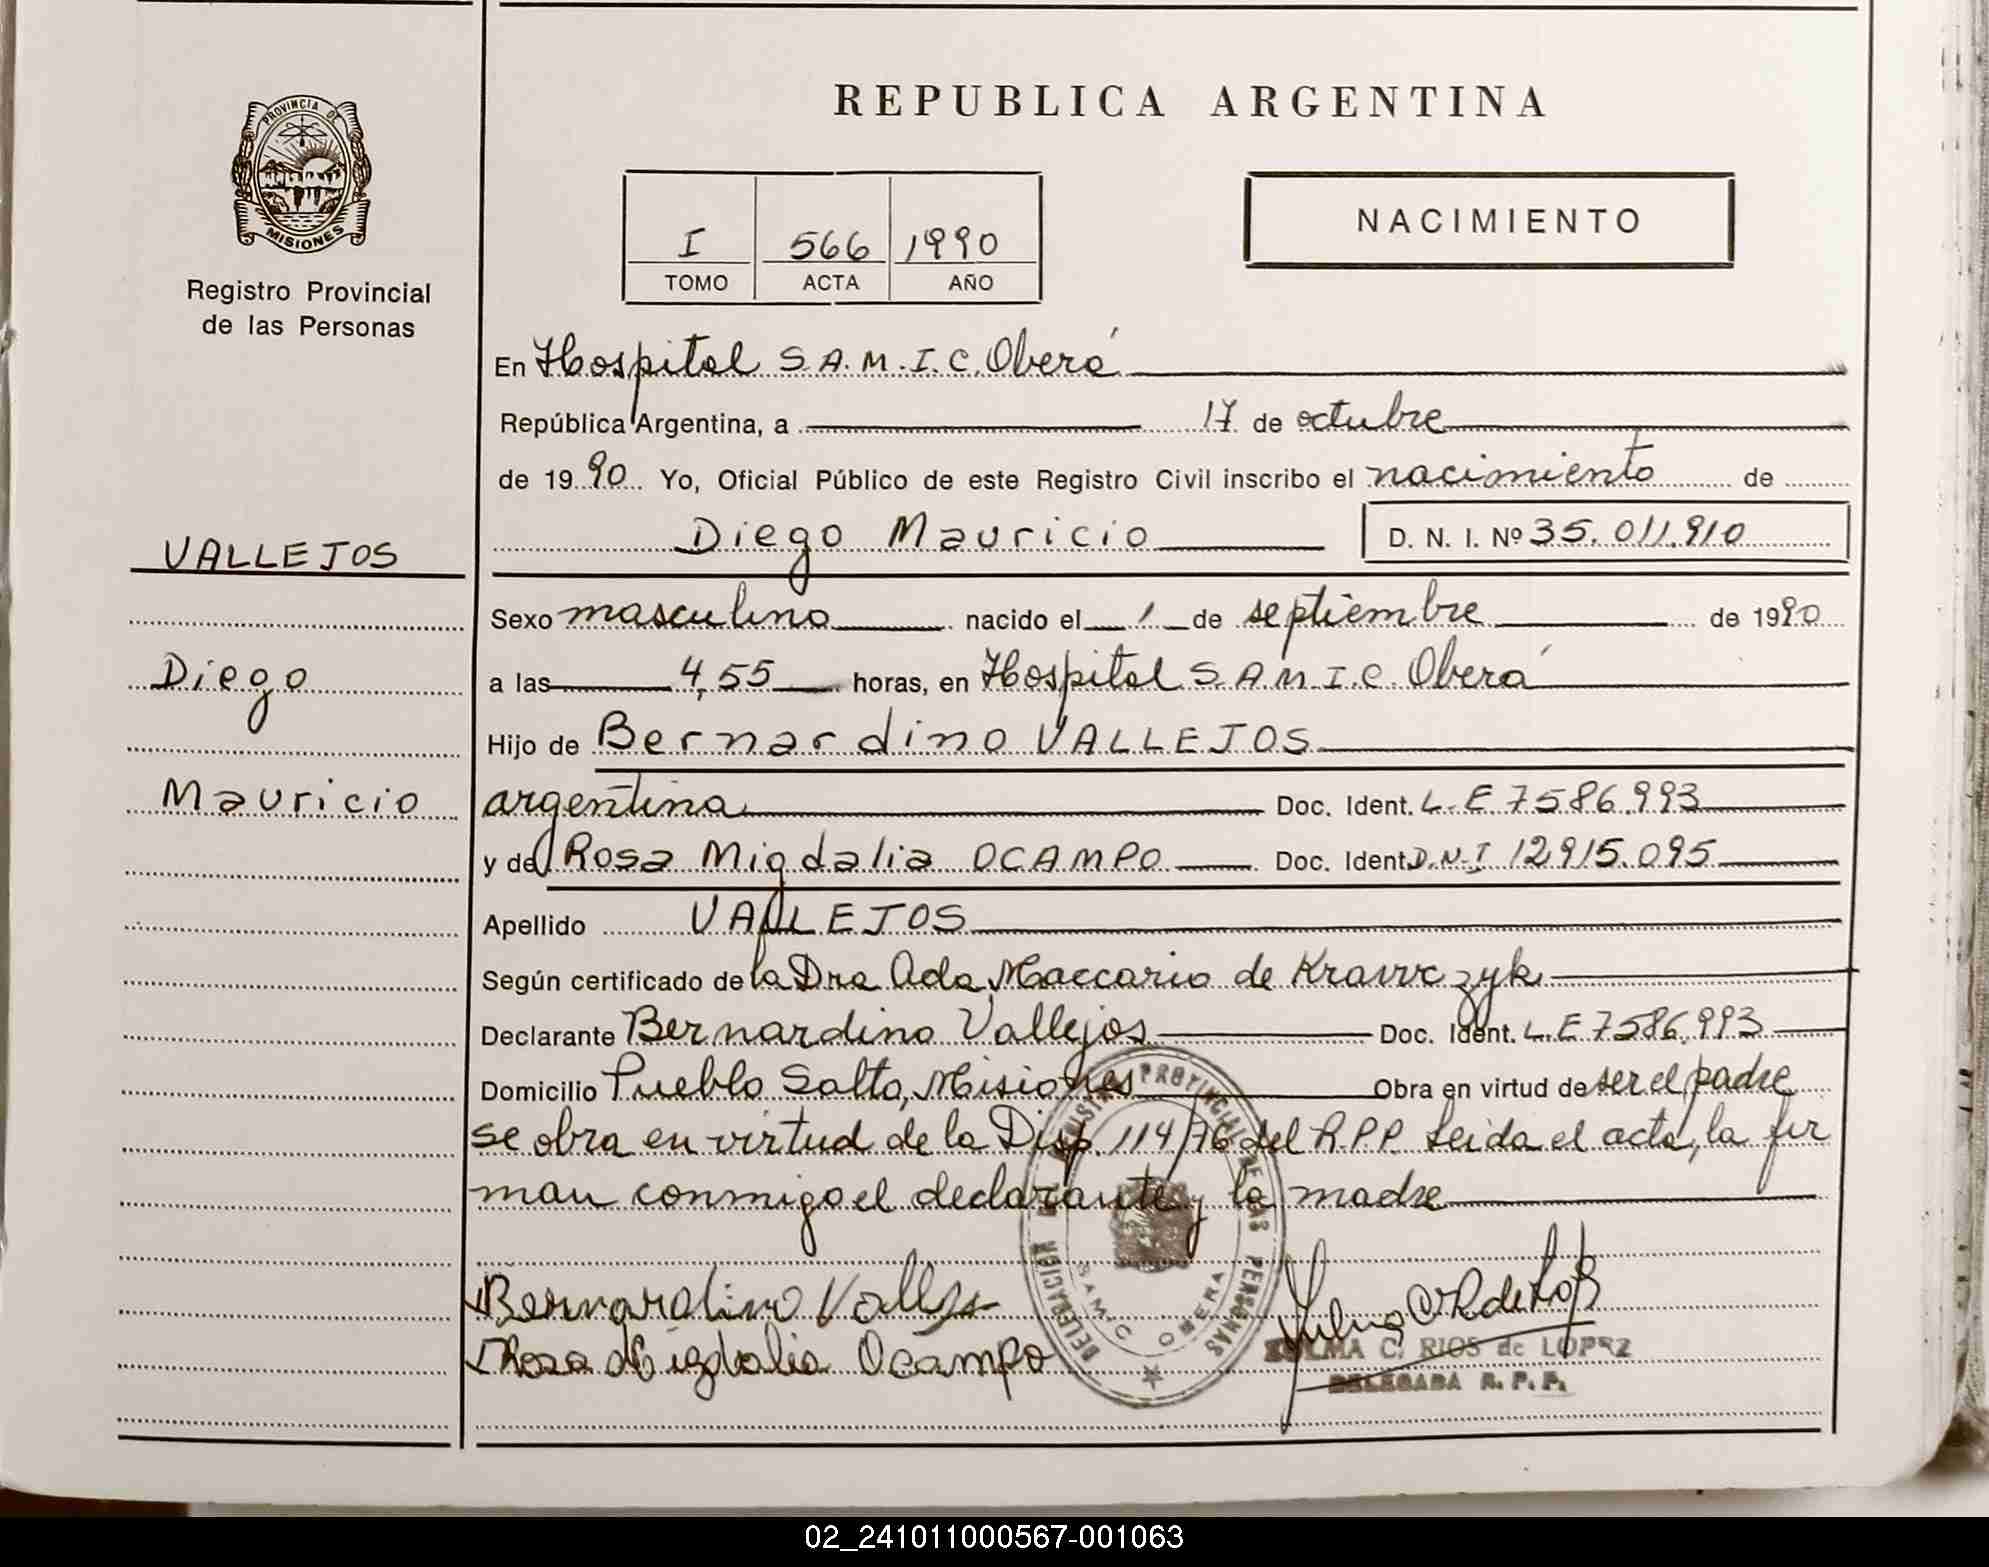 REPUBLICA ARGENTINA
PROVINCIA DE
MISIONES
Registro Provincial
de las Personas
I 566 1990
TOMO ACTA AÑO
NACIMIENTO
VALLEJOS
Diego
Mauricio
En Hospital S.A.M.I.C. Oberá
República Argentina, a 17 de octubre
de 1990 Yo, Oficial Público de este Registro Civil inscribo el nacimiento de
Diego Mauricio D. N. I. Nº 35.011.910
Sexo masculino nacido el 1 de septiembre de 1990
a las 4,55 horas, en Hospital S.A.M.I.C. Oberá
Hijo de Bernardino VALLEJOS
argentina Doc. Ident. L.E 7586.993
y de Rosa Migdalia OCAMPO Doc. Ident. D.N.I 12.915.095
Apellido VALLEJOS
Según certificado de la Dra Ada Maccario de Kravvczyk
Declarante Bernardino Vallejos Doc. Ident. L.E 7586.993
Domicilio Pueblo Salto, Misiones Obra en virtud de ser el padre
se obra en virtud de la Disp. 114/76 del R.P.P. Leida el acta, la fir
man conmigo el declarante y la madre
Bernardino
Rosa Migdalia Ocampo
DELEGACION PROVINCIAL DE LAS PERSONAS
SAMIC OBERA
ZULMA C. RIOS de LOPEZ
DELEGADA R. P. P.
02_241011000567-001063